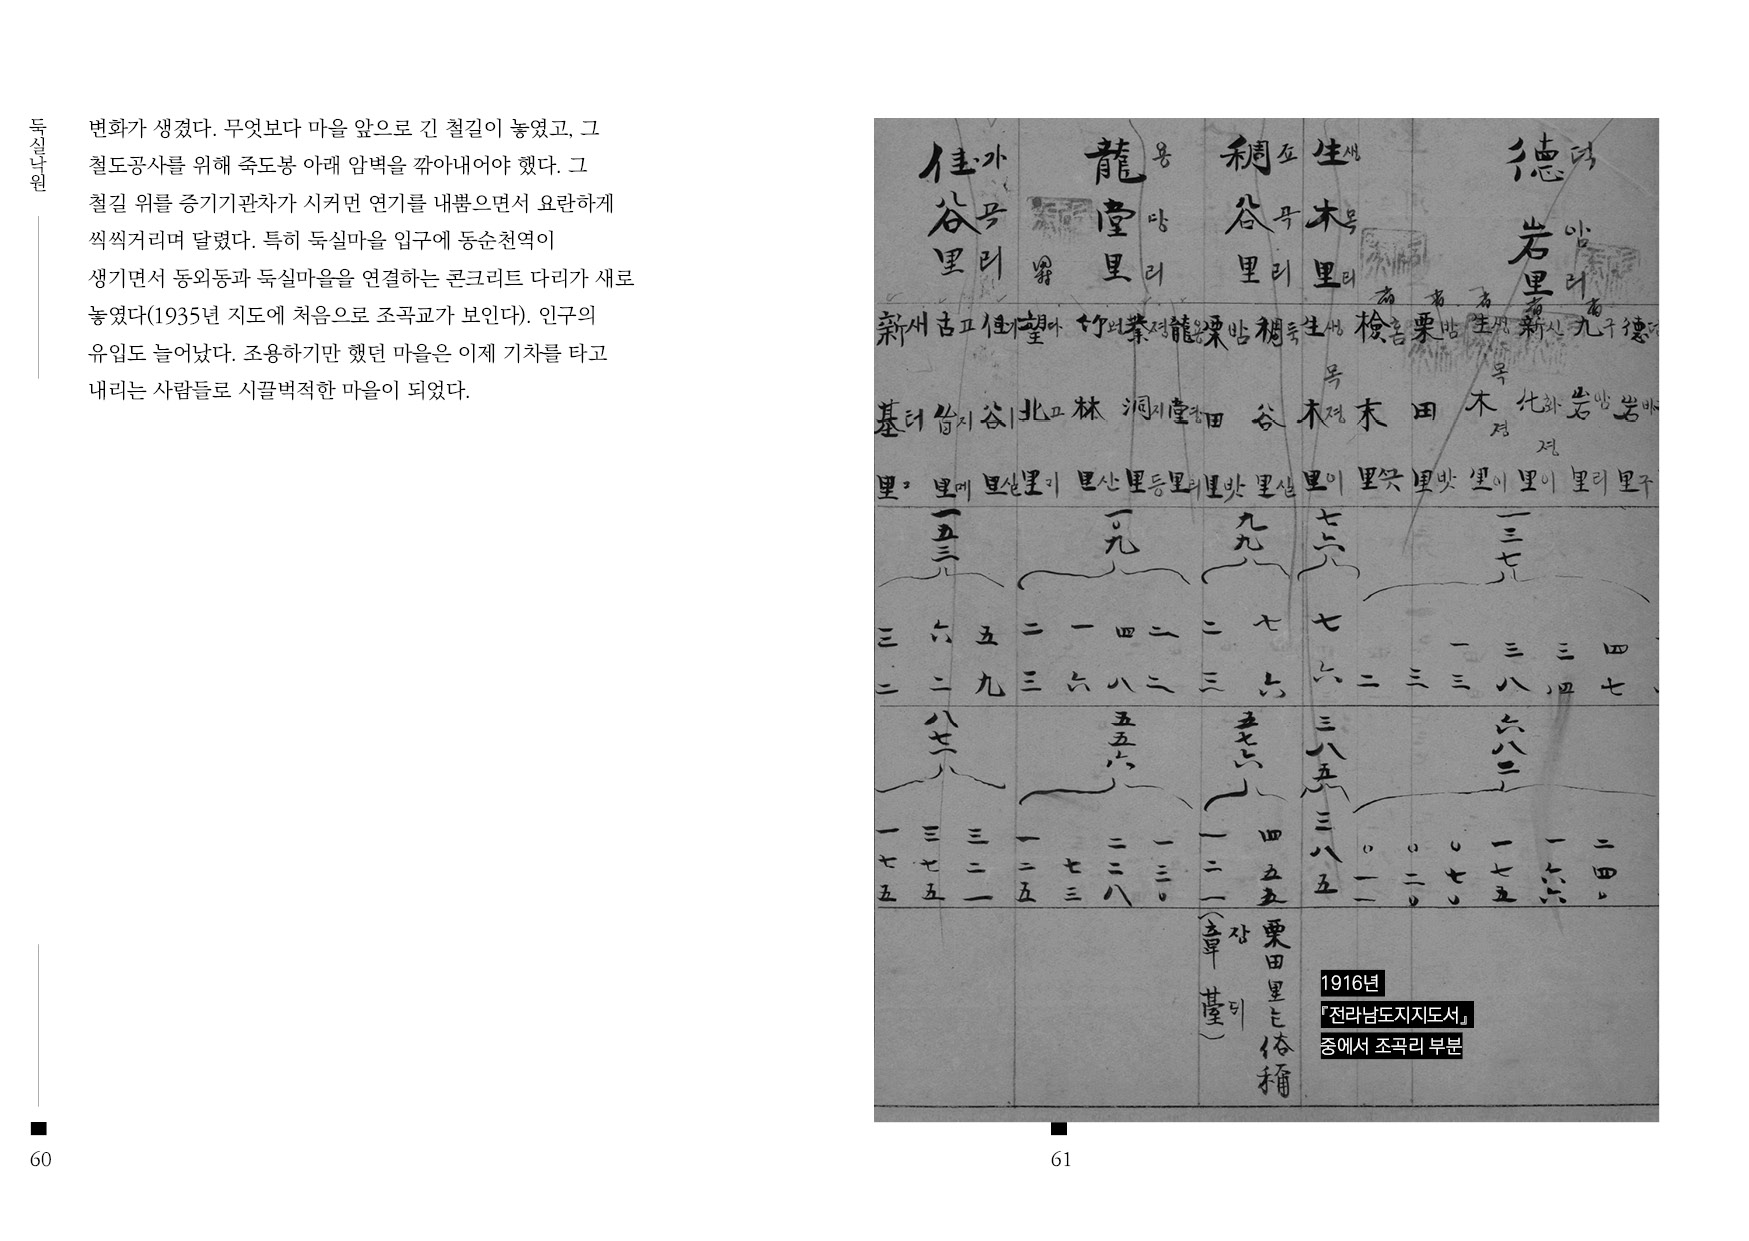 둑실낙원
변화가 생겼다. 무엇보다 마을 앞으로 긴 철길이 놓였고, 그
철도공사를 위해 죽도봉 아래 암벽을 깎아내어야 했다. 그
철길 위를 증기기관차가 시커먼 연기를 내뿜으면서 요란하게
씩씩거리며 달렸다. 특히 둑실마을 입구에 동순천역이
생기면서 동외동과 둑실마을을 연결하는 콘크리트 다리가 새로
놓였다(1935년 지도에 처음으로 조곡교가 보인다). 인구의
유입도 늘어났다. 조용하기만 했던 마을은 이제 기차를 타고
내리는 사람들로 시끌벅적한 마을이 되었다.
60
德岩里 덕암리
生木里 생목리
稠谷里 죠곡리
龍堂里 용당리
佳谷里 가곡리
德岩里
九岩里
生木里
栗田里 밤밧
生木里
稠谷里 둑실
栗田里 밤밧
龍堂里
竹林里
望北里
佳谷里
新基里 새터
一三七
七六
九九
一〇九
一五三
四七
三四
三八
一三
三
二
七六
七六
二三
二二
四八
一六
二三
五九
六二
三二
六八二
三八五
五七六
五五六
八七一
二四〇
一六六
一七五
〇七〇
〇二〇
〇一一
三八五
四五五
一二一
一三〇
二二八
七三
一二五
三二一
三七五
一七五
栗田里と俗稱
(章臺) 장듸
1916년
『전라남도지지도서』
중에서 조곡리 부분
61